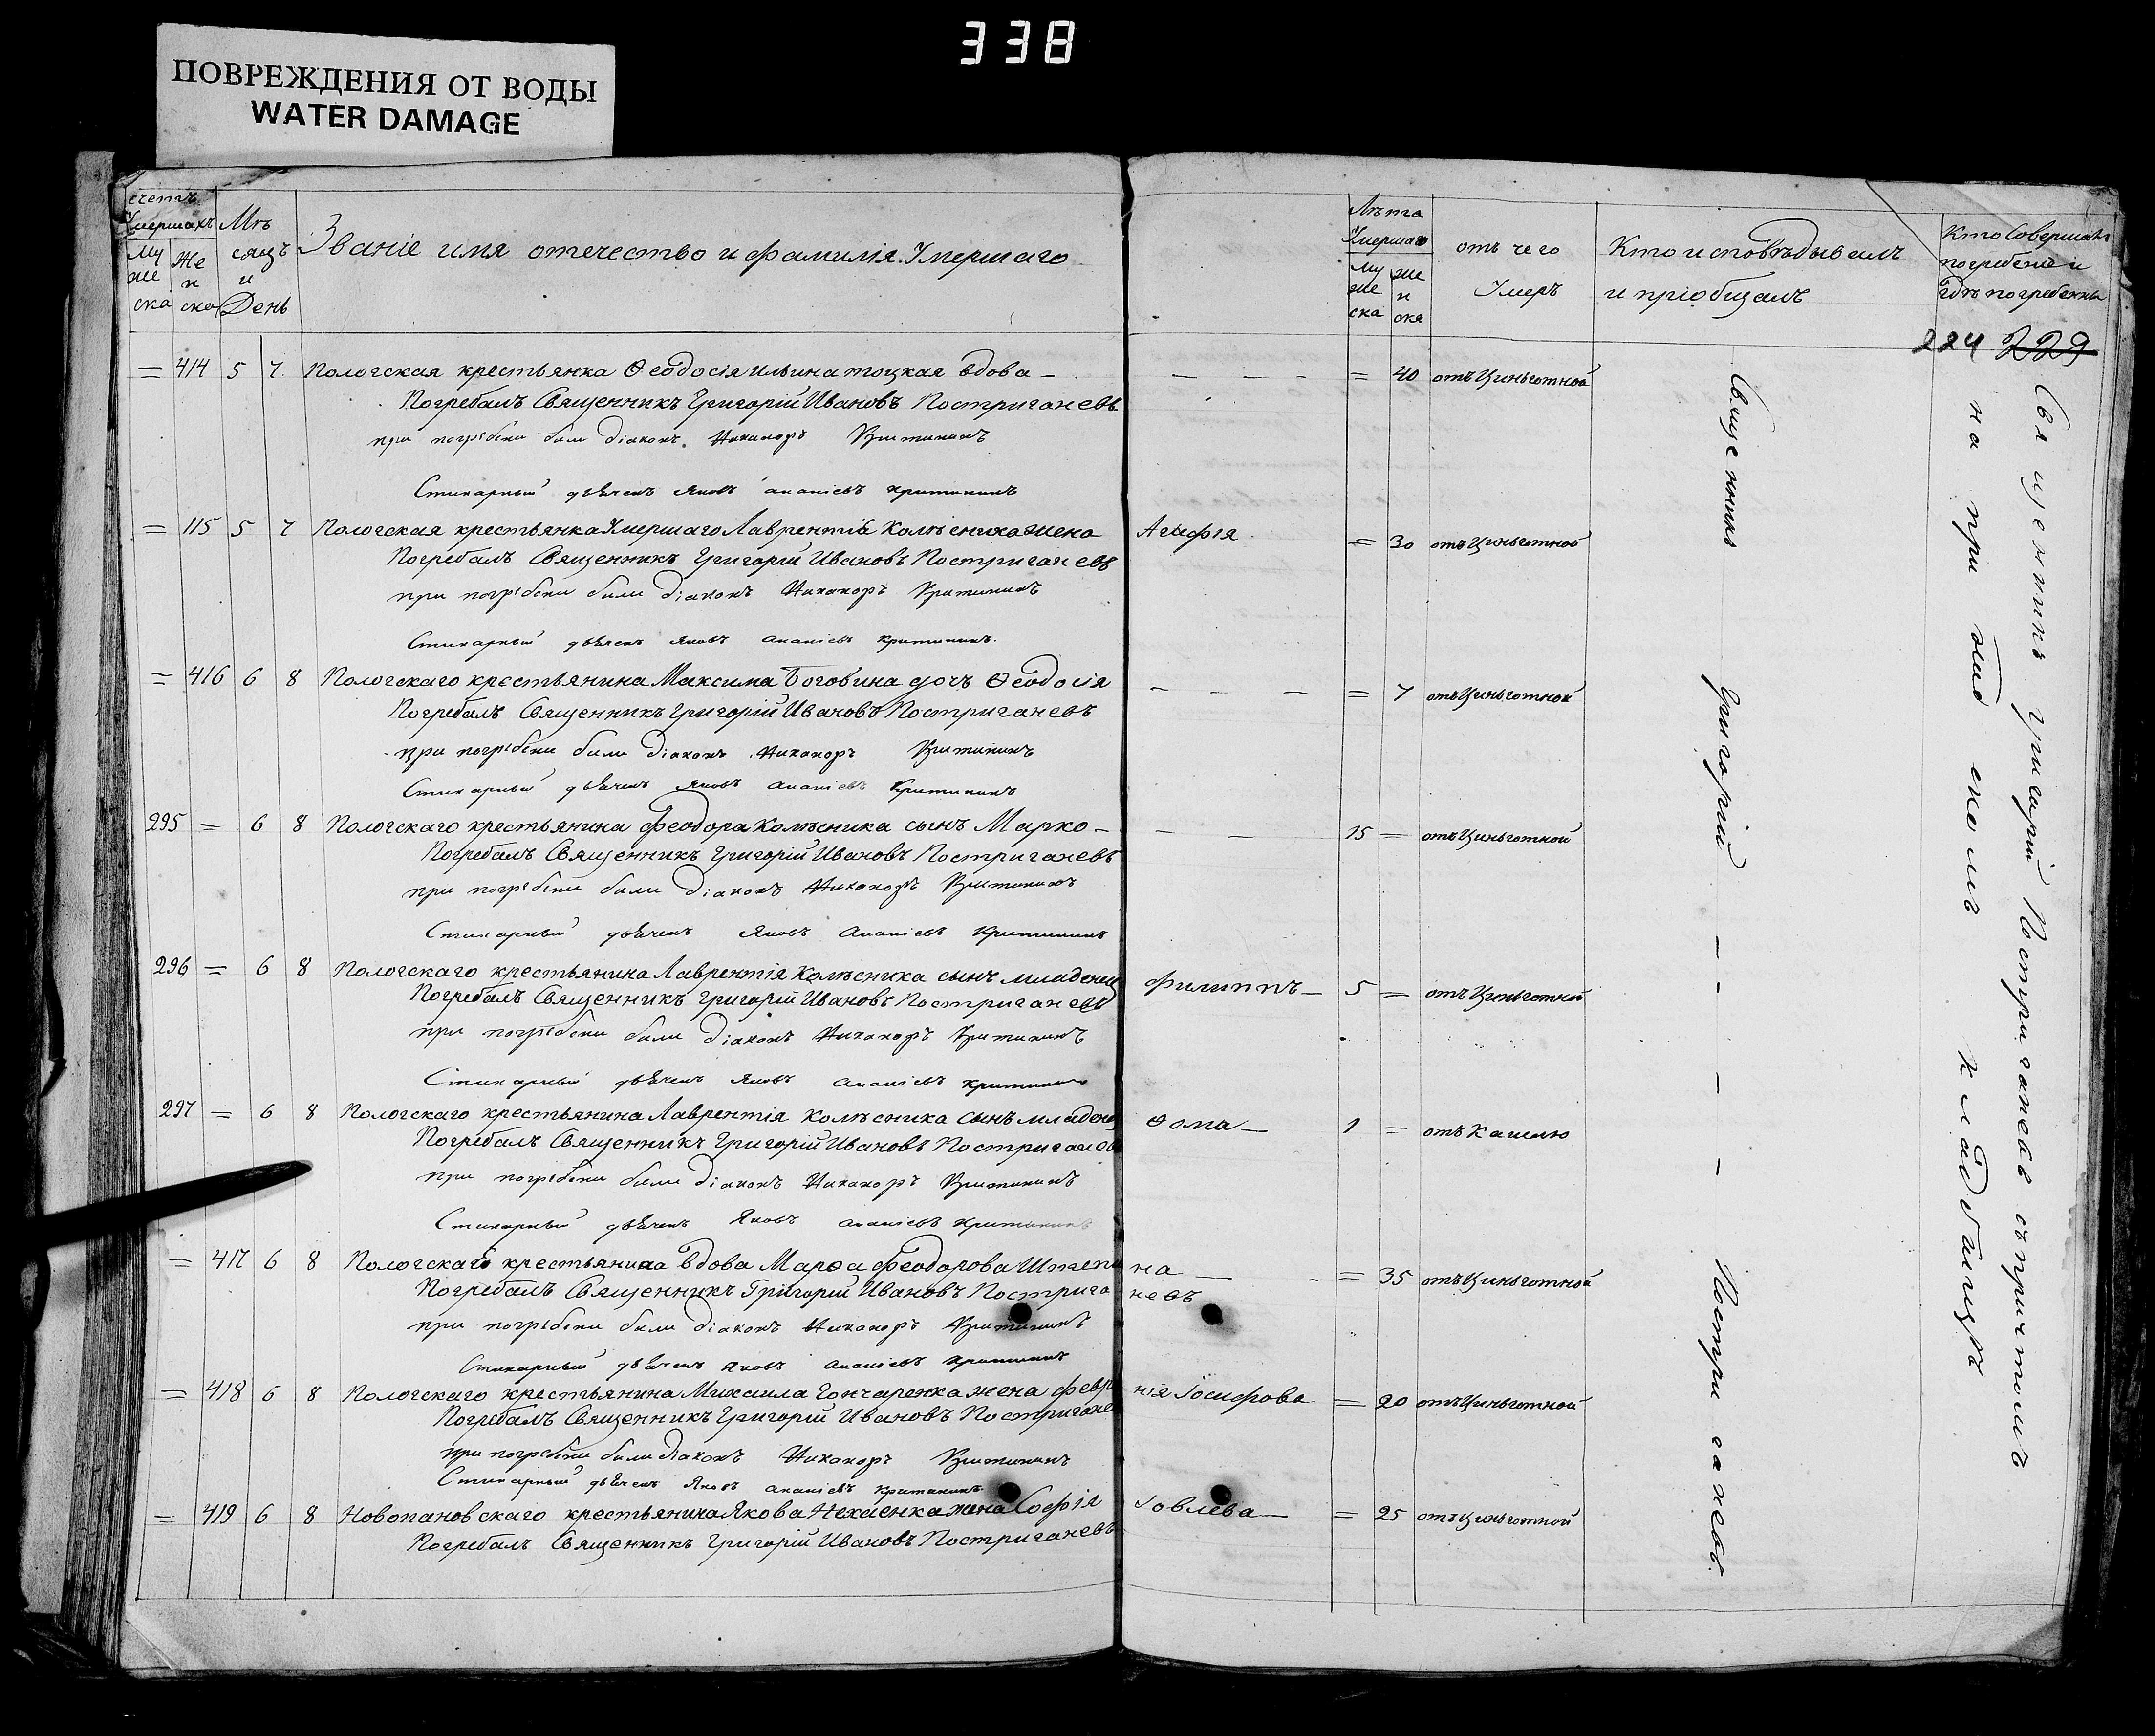 338
ПОВРЕЖДЕНИЯ ОТ ВОДЫ
WATER DAMAGE
счетъ Умершихъ
Муже ска
Женска
Мѣсяцъ и День
Званіе имя отечество и фамилія Умершаго
Лѣта Умершаго
Муже ска
Женска
отъ чего Умеръ
Кто исповѣдывалъ и пріобщалъ
Кто Совершалъ погребеніе и Гдѣ погребенны
224 229
= 414 5 7. Пологская крестьянка Ѳеодосія ильина тоцкая вдова — — — - = 40 отъ Циньготной
Погребалъ Священникъ Григорій Ивановъ Постригачевъ
при погребени били діаконъ Никаноръ Критининъ
Стихарный дьячекъ Яковъ ананіевъ критининъ
= 115 5 7 Пологская крестьянка Умершаго Лаврентія Колѣсника жена Агафія = 30 отъ Циньготной
Погребалъ Священникъ Григорій Ивановъ Постригачевъ
при погребени били діаконъ Никаноръ Критининъ
Стихарный дьячекъ Яковъ ананіевъ критининъ.
= 416 6 8 Пологскаго крестьянина Максима Боговина дочь Ѳеодосія - - — = 7 отъ Циньготной
Погребалъ Священникъ Григорій Ивановъ Постригачевъ
при погребени били діаконъ Никаноръ Критининъ
Стихарный дьячекъ Яковъ ананіевъ Критининъ
295 = 6 8 Пологскаго крестьянина Феодора Колѣсника сынъ Марко — - — 15 = отъ Циньготной
Погребалъ Священникъ Григорій Ивановъ Постригачевъ
при погребени били діаконъ Никаноръ Критининъ
Стихарный дьячекъ Яковъ Ананіевъ Критининъ
296 = 6 8 Пологскаго крестьянина Лаврентія Колѣсника сынъ младенец Филиппъ — 5 = отъ Циньготной
Погребалъ Священникъ Григорій Ивановъ Постригачевъ
при погребени били діаконъ Никаноръ Критининъ
Стихарный дьячекъ Яковъ ананіевъ критининъ
297 = 6 8 Пологскаго крестьянина Лаврентія Колѣсника Сынъ младенец Ѳома — 1 = отъ Кашлю
Погребалъ Священникъ Григорій Ивановъ Постригачев
при погребени били діаконъ Никаноръ Критининъ
Стихарный дьячекъ Яковъ ананіевъ критининъ
= 417 6 8 Пологскаго крестьянина вдова Марѳа Феодорова Штепина — - = 35 отъ Циньготной
Погребалъ Священникъ Григорій Ивановъ Постригачевъ
при погребени били діаконъ Никаноръ Критининъ
Стихарный дьячекъ Яковъ ананіевъ критининъ
= 418 6 8 Пологскаго крестьянина Михаила Гончаренка жена Февронія Іосифова = 20 отъ Циньготной
Погребалъ Священникъ Григорій Ивановъ Постригаче
при погребени били діаконъ Никаноръ Критининъ
Стихарный дьячекъ Яковъ ананіевъ критининъ
= 419 6 8 Новопановскаго крестьянина Якова жена Софія Іовлева — = 25 отъ Циньготной
Погребалъ Священникъ Григорій Ивановъ Постригачевъ
Священникъ Григорій — - - - Постригачевъ.
Священникъ григарій Постригачевъ съ причтомъ
на при кладбищѣ